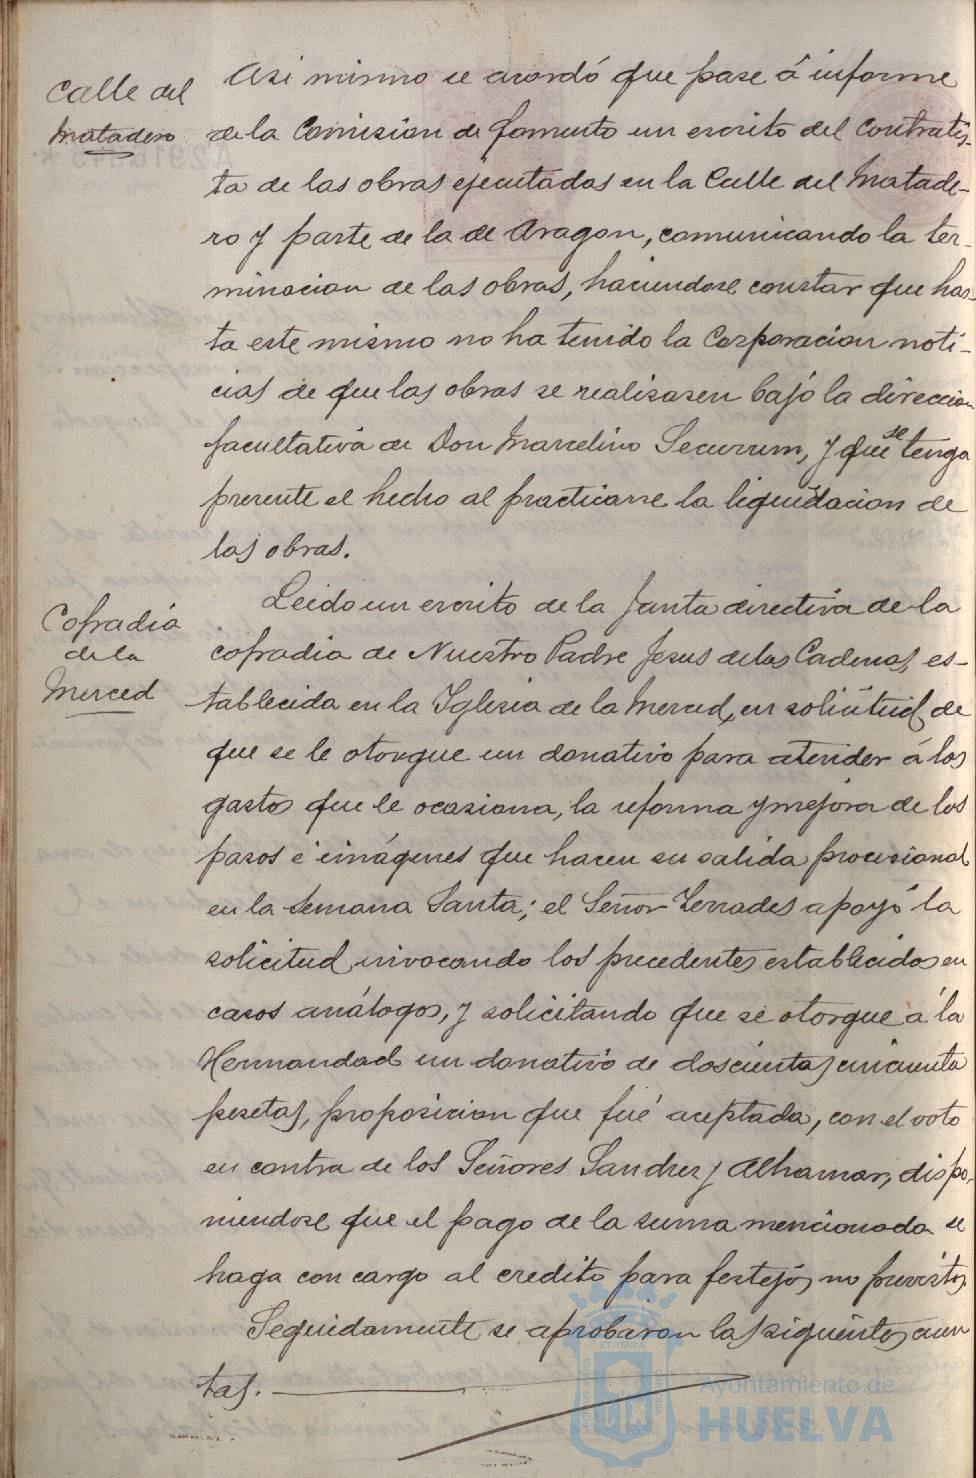 Calle del
Matadero
Asi mismo se acordó que pase á informe
de la Comision de fomento un escrito del Contratis-
ta de las obras ejecutadas en la Calle del Matade-
ro y parte de la de Aragon, comunicando la ter-
minacion de las obras, haciendose constar que has-
ta este mismo no ha tenido la Corporacion noti-
cias de que las obras se realisasen bajo la direccion
facultativa de Don Marcelino Securum, y que se tenga
presente el hecho al practicarse la liquidacion de
las obras.
Cofradia
de la
Merced
Leido un escrito de la Junta directiva de la
cofradia de Nuestro Padre Jesus de las Cadenas, es-
tablecida en la Iglesia de la Merced, en solicitud de
que se le otorgue un donativo para atender á los
gastos que le ocasiona, la reforma y mejora de los
pasos é imágenes que hacen su salida procesional
en la Semana Santa; el Señor Terrades apoyó la
solicitud invocando los precedentes establecidos en
casos análogos, y solicitando que se otorgue á la
Hermandad un donativo de doscientas cincuenta
pesetas, proposicion que fué aceptada, con el voto
en contra de los Señores Sanchez y Alhamar, dispo-
niendose que el pago de la suma mencionada se
haga con cargo al credito para festejos no previstos.
Seguidamente se aprobaron las siguientes cuen
tas.
Ayuntamiento de
HUELVA